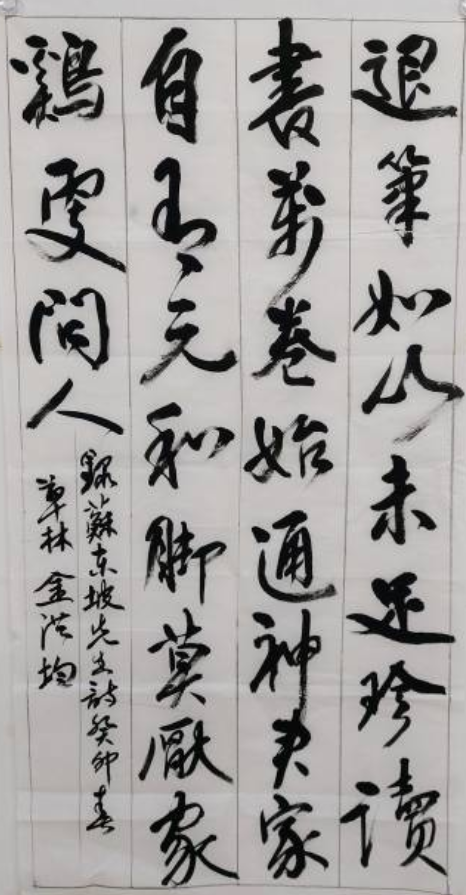 退筆如山未足珍讀
書萬卷始通神君家
自有元和脚莫厭家
鷄更問人
錄蘇東坡先生詩癸卯春
草林金洪均